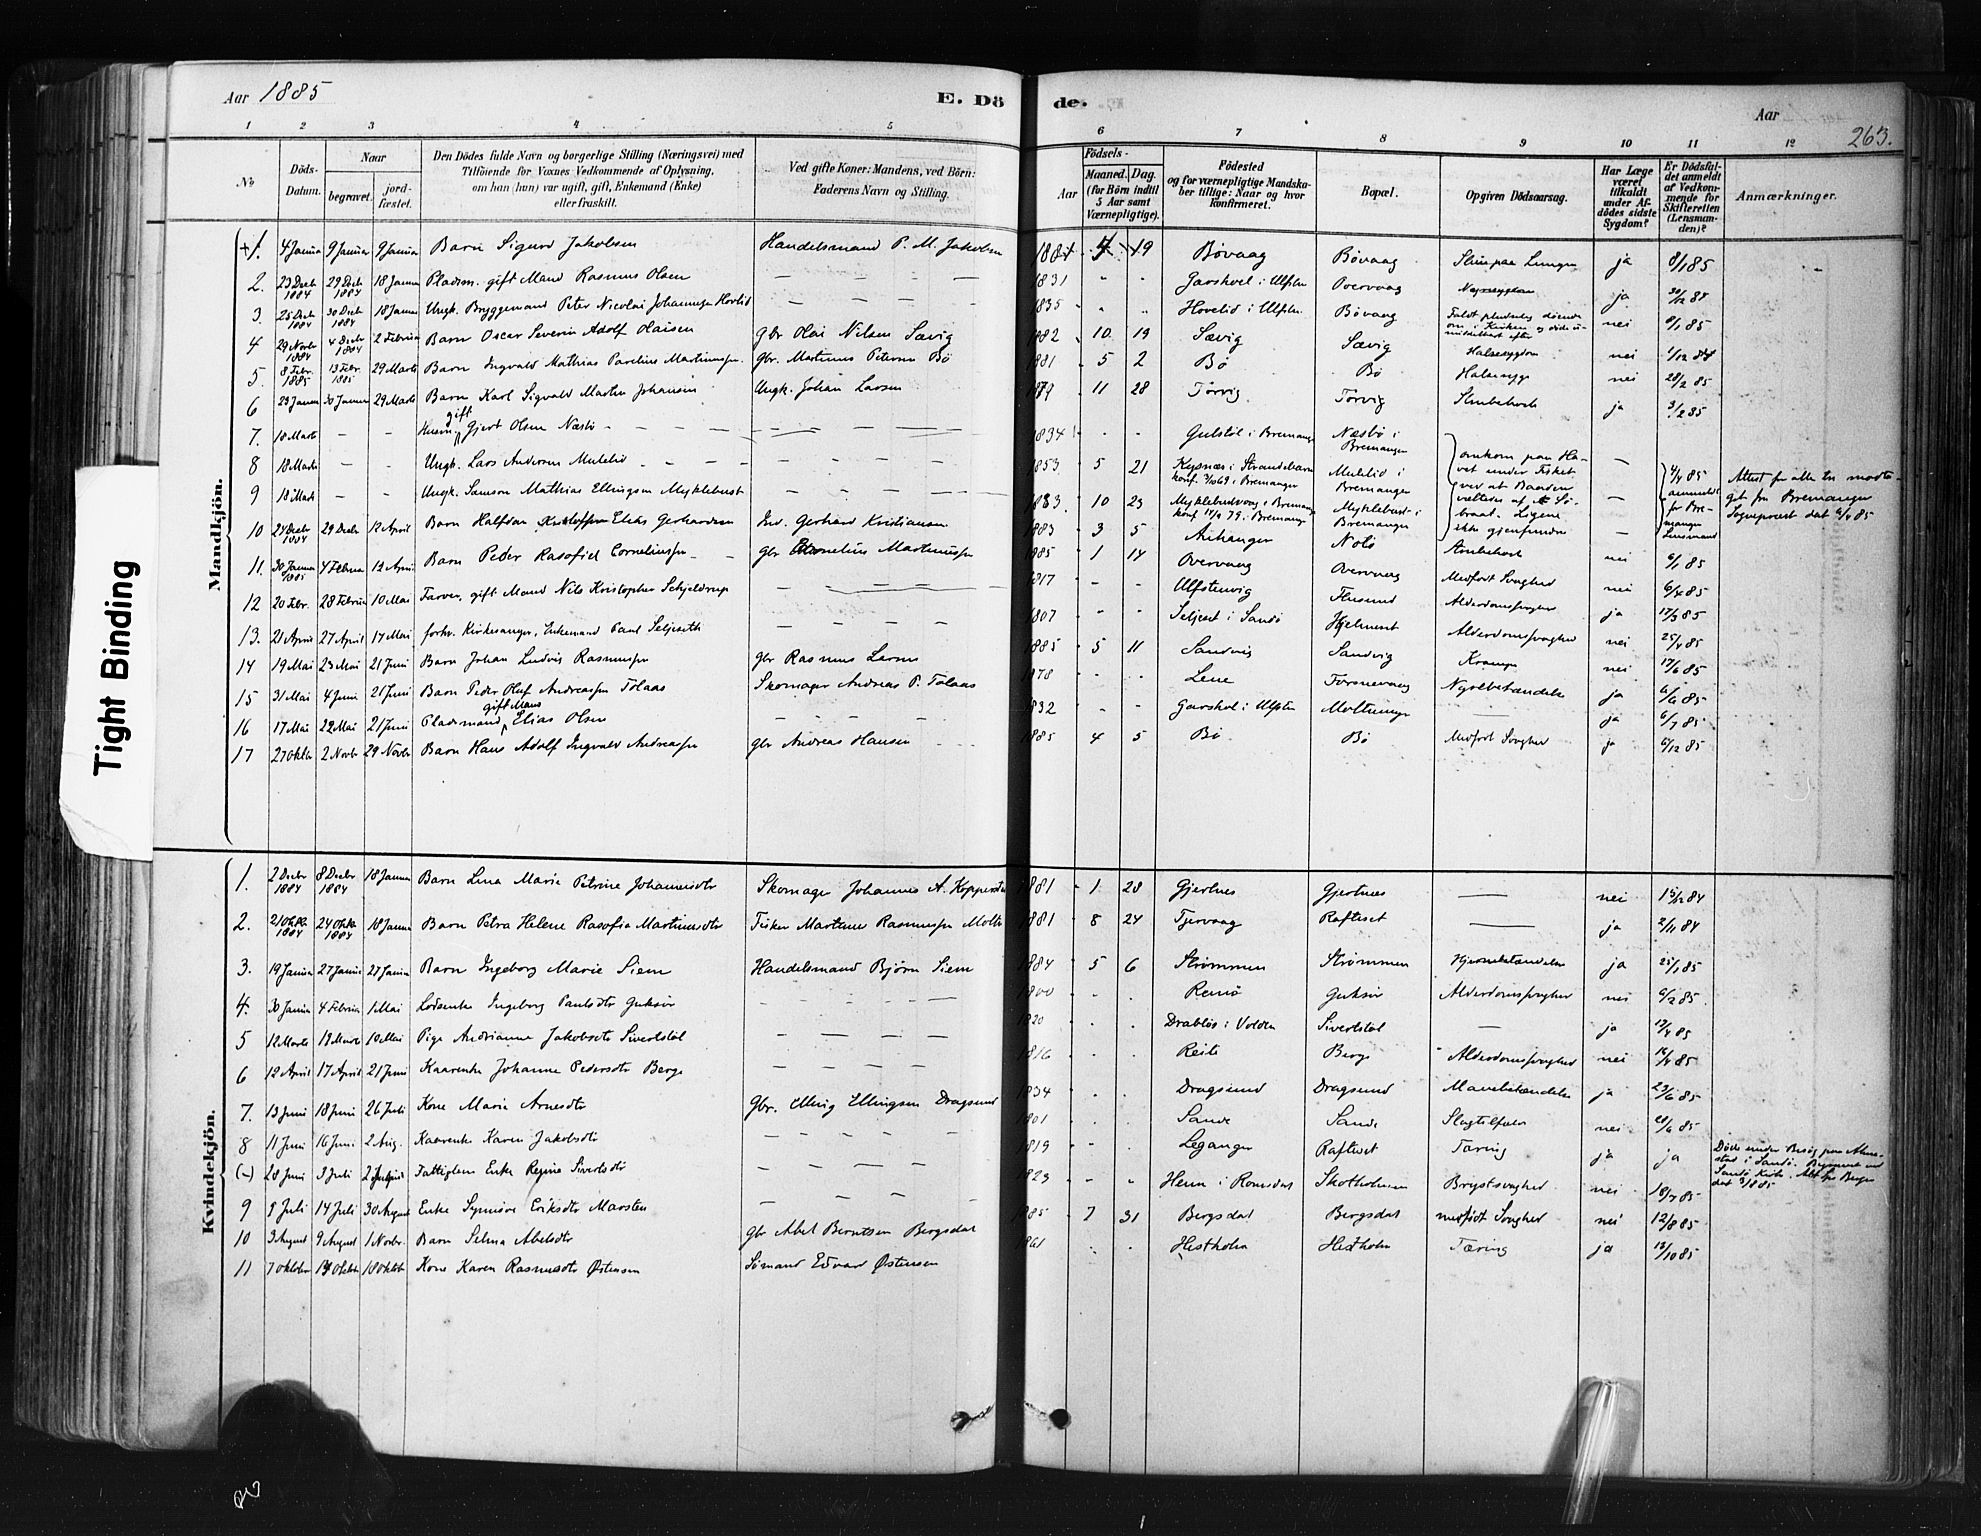 Aar 1885
E. Dö
de.
Aar
263.
1 2 3 4 5 6 7 8 9 10 11 12
No
Döds-Datum.
Naar
begravet.
jord-fæstet.
Den Dödes fulde Navn og borgerlige Stilling (Næringsvei) med
Tilföiende for Voxnes Vedkommende af Oplysning,
om han (hun) var ugift, gift, Enkemand (Enke)
eller fraskilt.
Ved gifte Koner: Mandens, ved Börn:
Faderens Navn og Stilling.
Födsels-
Aar
Maaned. Dag.
(for Börn indtil
5 Aar samt
Værnepligtige).
Födested
og for værnepligtige Mandska-
ber tillige: Naar og hvor
konfirmeret.
Bopæl.
Opgiven Dödsaarsag.
Har Læge
været
tilkaldt
under Af-
dödes sidste
Sygdom?
Er Dödsfal-
det anmeldt
af Vedkom-
mende for
Skifteretten
(Lensman-
den)?
Anmærkninger.
Mandkjön.
1. 4 Januar 9 Januar 9 Januar Barn Sigurd Jakobsen Handelsmand P. M. Jakobsen 19 Bøvaag Bøvaag ja 8/1 85
2. 23 Decb 1884 29 Decb 1884 18 Januar Pladsm. gift Mand Rasmus Olsen — — — 1831 Overvaag ja 30/12 84
3. 25 Decb 1884 30 Decb 1884 18 Januar Ungk. Bryggemand Peter Nicolai Johannesen Hovlid — — — — 1835 Hovelid i Ulfsten Bøvaag Faldt pludselig døende om i Kirken og døde umiddelbart efter nei 8/1 85
4 29 Novbr 1884 4 Decbr 1884 2 Februar Barn Oscar Severin Adolf Olaisen gbr Olai Nilsen Sævig 1882 10 19 Sævig Sævig Halsesygdom nei 1/12 84
5. 8 Febr. 1885 13 Febr. 1885 29 Marts Barn Ingvald Mathias Martinussen gbr. Martinus Petersen Bø 1881 5 2 Bø Bø Halsesyge nei 28/2 85
6 23 Januar 30 Januar 29 Marts Barn Karl Sigvald Martin Johansen Ungk. Johan Larsen 1879 11 28 Tørvig Tørvig Strubehoste ja 3/2 85
7. 18 Marts — — Husm. gift Gjert Olsen Næsbø — — — 1834 Gulstøl i Bremanger Næsbø i Bremanger
8 18 Marts — — Ungk. Lars Andersen Mulelid — — — 1853 5 21 konf. 3/10 69 i Bremanger Mulelid i Bremanger omkom paa Havet under Fisket ved at Baaden væltedes af Søbraat. Ligene ikke gjenfundne — 4/4 85 anmeldt for Bremanger Lensmand Attest for alle tre modtaget fra Bremanger Sognepræst dat 6/4 85
9 18 Marts — — Ungk. Samson Mathias Ellingsen Myklebust — — — 10 23 Myklebust i Bremanger —
10 24 Decbr 1884 29 Decbr 12 April Barn Halfdan Kristoffer Elias Gerhardsen Ind. Gerhard Kristiansen 1883 3 5 nei 6/1 85
11. 30 Januar 1885 4 Februar 12 April Barn Peder Rasofiel Corneliussen gbr Cornelius Martinussen 1885 1 14 Overvaag Overvaag Medfødt Svaghed nei
12 20 Febr. 28 Februar 10 Mai Farver, gift Mand Nils Kristopher Schjeldrup — — — 1817 Ulfstenvig Flusund Alderdomssvaghed ja 17/3 85
13. 21 April 27 April 17 Mai forhv. Kirkesanger, Enkemand Paul Seljeseth — — — 1807 Seljeset i Sandø Hjelmeset Alderdomssvaghed nei 25/4 85
14 19 Mai 23 Mai 21 Juni Barn Johan Ludvig Rasmussen gbr Rasmus Larsen 1885 5 11 Sandvig Sandvig Krampe nei 17/6 85
15 31 Mai 4 Juni 21 Juni Barn Peder Oluf Andreassen Tolaas Skomager Andreas P. Tolaas 1878 Lene ja 6/6 85
16 17 Mai 22 Mai 21 Juni Pladsmand, gift Mand Elias Olsen — — — 1832 — ja 6/7 85
17 27 Oktbr 2 Novbr 29 Novbr Barn Hans Adolf Ingvald Andreassen gbr Andreas Hansen 1885 4 5 Bø Bø Medfødt Svaghed ja 6/12 85
Kvindekjön.
1. 2 Decbr 1884 8 Decbr 1884 18 Januar Barn Lina Marie Petrine Johannesdtr Skomager Johannes A. 1881 1 28 Gjertnes Gjertnes — nei 15/12 84
2. 21 Oktbr 1884 24 Oktbr 1884 18 Januar Barn Petra Helene Rasofia Martinusdtr Fisker Martinus Rasmussen 1881 8 24 Tjervaag Rafteset — ja 2/11 84
3. 19 Januar 27 Januar 27 Januar Barn Ingeborg Marie Siem Handelsmand Bjørn Siem 1884 5 6 Strømmen Strømmen Hjernebetændelse ja 25/1 85
4. 30 Januar 4 Februar 1 Mai Lodsenke Ingeborg Paulsdtr Guksør — — — 1800 Remø Guksør Alderdomssvaghed nei 6/2 85
5 12 Marts 18 Marts 10 Mai Pige Andrianne Jakobsdtr Sivertstøl — — — 1820 Drabløs i Volden Sivertstøl — ja 17/4 85
6 12 April 17 April 21 Juni Kaarenke Johanne Pedersdtr Berge — — — 1816 Reite Berge Alderdomssvaghed nei 16/4 85
7. 13 Juni 18 Juni 26 Juli Kone Marie Arnesdtr gbr. Elling Ellingsen Dragsund 1834 Dragsund Dragsund Mavebetændelse ja 23/6 85
8 11 Juni 16 Juni 2 Aug. Kaarenke Karen Jakobsdtr — — — 1801 Sande Sande Slagtilfælde nei 20/6 85
(-) 28 Juni 3 Juli 2 Fattiglem Enke Regine Sivertsdtr — — — 1819 Leganger Rafteset Tæring ja ja Døde under Besøg paa i Sandø. Begravet ved Sandø Kirke.
9 8 Juli 14 Juli 30 August Enke Synnøve Eriksdtr Marsten — — — 1823 Henn i Romsdal Skotholmen Brystsvaghed nei 18/7 85
10 3 August 9 August 1 Novbr. Barn Selma Abelsdtr gbr Abel Berntsen Bergsdal 1885 7 31 Bergsdal Bergsdal medfødt Svaghed nei 12/8 85
11 7 Oktober 14 Oktbr 18 Oktbr Kone Karen Rasmusdtr Østensen Sømand Edvard Østensen 1861 Hestholm Hestholm Tæring ja 13/10 85
Tight Binding